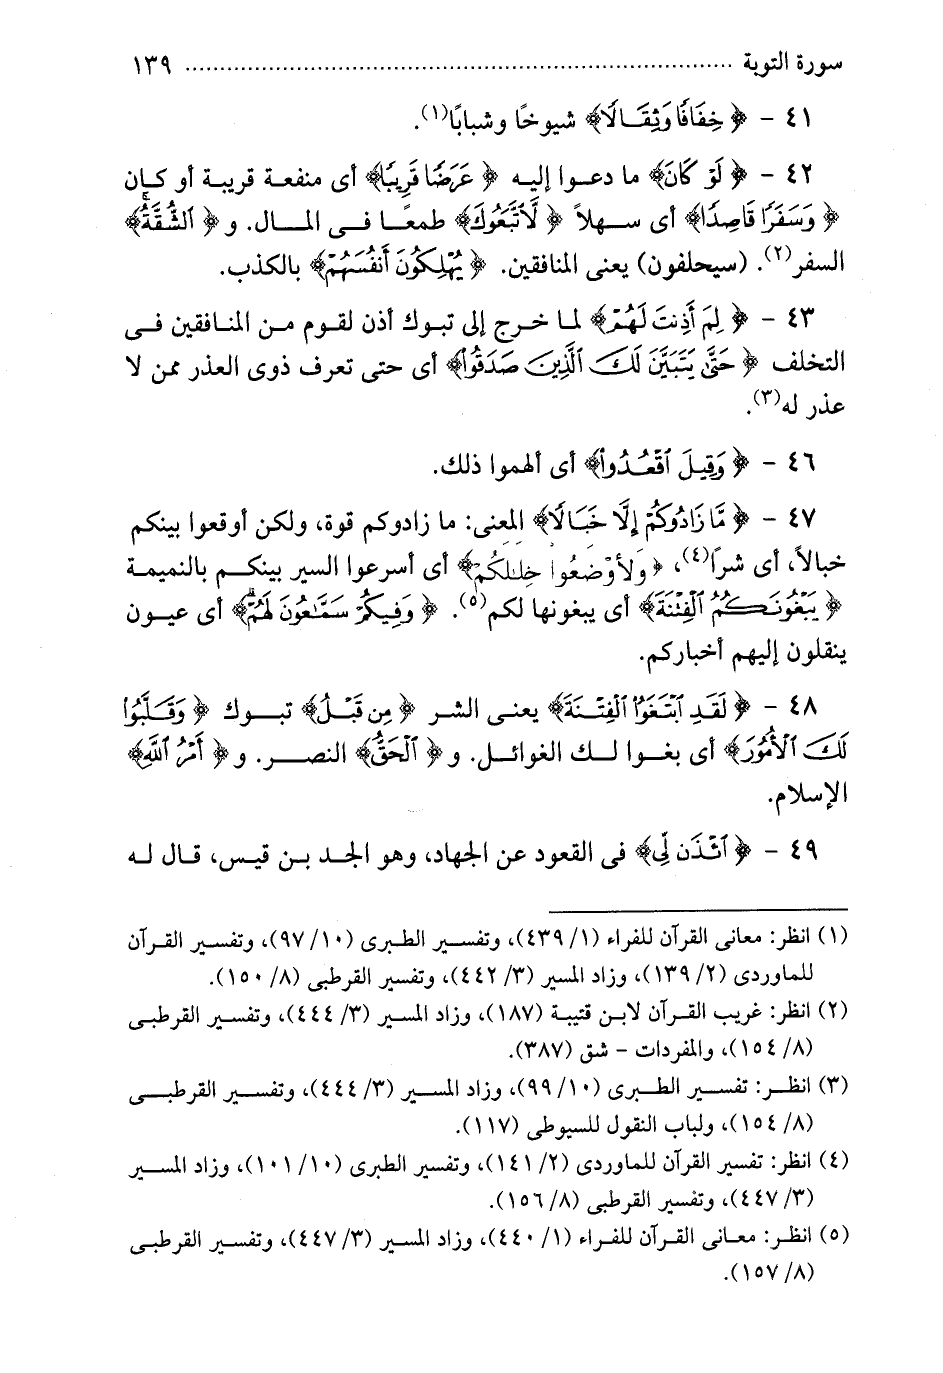 سورة التوبة ........................................................... ١٣٩
٤١ - ﴿خِفَافًا وَثِقَالًا﴾ شيوخًا وشبابًا(١).
٤٢ - ﴿لَوْ كَانَ﴾ ما دعوا إليه ﴿عَرَضًا قَرِيبًا﴾ أى منفعة قريبة أو كان
﴿وَسَفَرًا قَاصِدًا﴾ أى سهلاً ﴿لَّاتَّبَعُوكَ﴾ طمعًا فى المال. و﴿الشُّقَّةُ﴾
السفر(٢). (سيحلفون) يعنى المنافقين. ﴿يُهْلِكُونَ أَنفُسَهُمْ﴾ بالكذب.
٤٣ - ﴿لِمَ أَذِنتَ لَهُمْ﴾ لما خرج إلى تبوك أذن لقوم من المنافقين فى
التخلف ﴿حَتَّىٰ يَتَبَيَّنَ لَكَ الَّذِينَ صَدَقُوا﴾ أى حتى تعرف ذوى العذر ممن لا
عذر له(٣).
٤٦ - ﴿وَقِيلَ اقْعُدُوا﴾ أى ألهموا ذلك.
٤٧ - ﴿مَّا زَادُوكُمْ إِلَّا خَبَالًا﴾ المعنى: ما زادوكم قوة، ولكن أوقعوا بينكم
خبالاً، أى شرًا(٤)، ﴿وَلَأَوْضَعُوا خِلَالَكُمْ﴾ أى أسرعوا السير بينكم بالنميمة
﴿يَبْغُونَكُمُ الْفِتْنَةَ﴾ أى يبغونها لكم(٥). ﴿وَفِيكُمْ سَمَّاعُونَ لَهُمْ﴾ أى عيون
ينقلون إليهم أخباركم.
٤٨ - ﴿لَقَدِ ابْتَغَوُا الْفِتْنَةَ﴾ يعنى الشر ﴿مِن قَبْلُ﴾ تبوك ﴿وَقَلَّبُوا
لَكَ الْأُمُورَ﴾ أى بغوا لك الغوائل. و﴿الْحَقُّ﴾ النصر. و﴿أَمْرُ اللَّهِ﴾
الإسلام.
٤٩ - ﴿ائْذَن لِّي﴾ فى القعود عن الجهاد، وهو الجد بن قيس، قال له
(١) انظر: معانى القرآن للفراء (١/ ٤٣٩)، وتفسير الطبرى (١٠/ ٩٧)، وتفسير القرآن
للماوردى (٢/ ١٣٩)، وزاد المسير (٣/ ٤٤٢)، وتفسير القرطبى (٨/ ١٥٠).
(٢) انظر: غريب القرآن لابن قتيبة (١٨٧)، وزاد المسير (٣/ ٤٤٤)، وتفسير القرطبى
(٨/ ١٥٤)، والمفردات - شق (٣٨٧).
(٣) انظر: تفسير الطبرى (١٠/ ٩٩)، وزاد المسير (٣/ ٤٤٤)، وتفسير القرطبى
(٨/ ١٥٤)، ولباب النقول للسيوطى (١١٧).
(٤) انظر: تفسير القرآن للماوردى (٢/ ١٤١)، وتفسير الطبرى (١٠/ ١٠١)، وزاد المسير
(٣/ ٤٤٧)، وتفسير القرطبى (٨/ ١٥٦).
(٥) انظر: معانى القرآن للفراء (١/ ٤٤٠)، وزاد المسير (٣/ ٤٤٧)، وتفسير القرطبى
(٨/ ١٥٧).